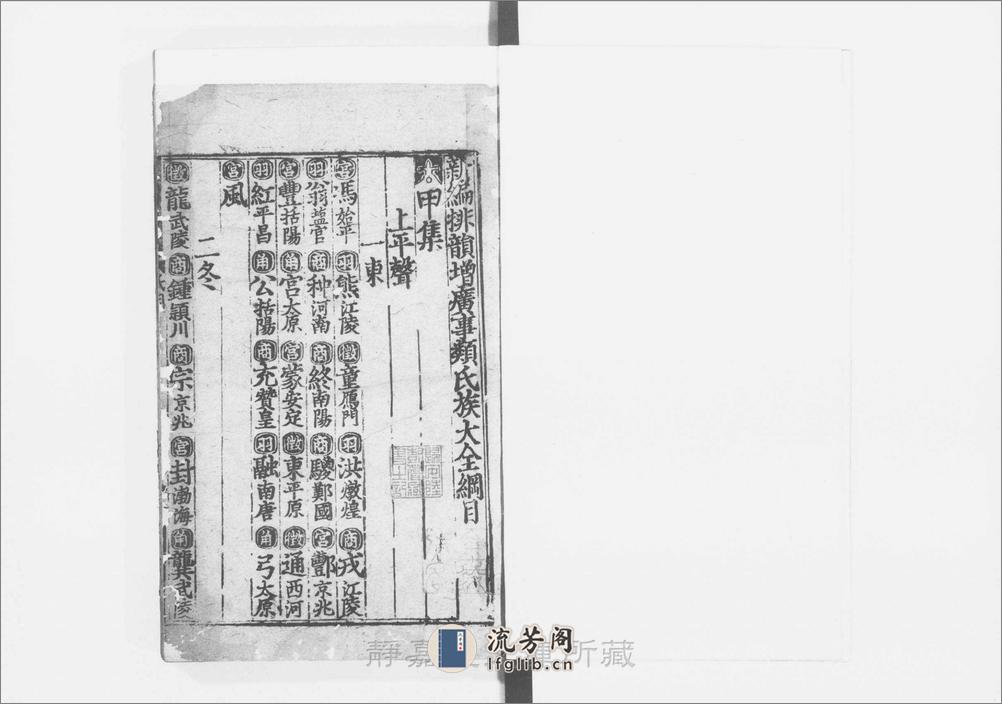 新編排韻增廣事類氏族大全綱目
甲集
上平聲
一東
宮馮始平 羽熊江陵 徵童鴈門 羽洪燉煌 商戎江陵
羽翁鹽官 商种河南 商終南陽 商鬷鄭國 宮酆京兆
宮豐括陽 角宮太原 宮蒙安定 徵東平原 徵通西河
羽紅平昌 角公括陽 商充贊皇 羽融南唐 角弓太原
宮風
二冬
徵龍武陵 商鍾潁川 商宗京兆 宮封渤海 角龔武陵
靜嘉 所藏
流芳阁
lfglib.cn